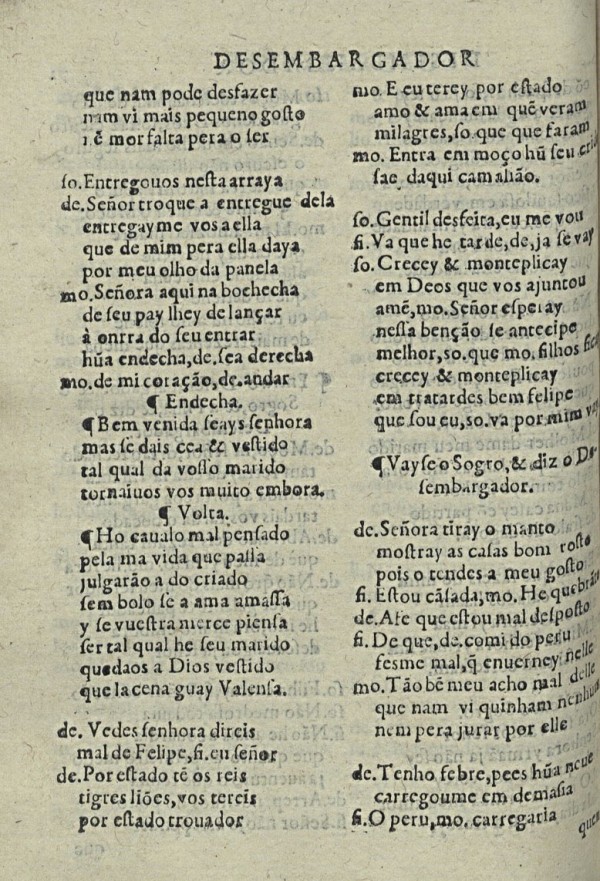 DESEMBARGADOR
que nam pode desfazer
nam vi mais pequeno gosto
mor falta pera o ser
so.Entregouos nesta arraya
de.Señor troque a entregue dela
entregayme vos a ella
que de mim pera ella daya
por meu olho da panela
mo.Señora aqui na bochecha
de seu pay lhey de lançar
à onrra do seu entrar
hũa endecha,de.sea derecha
mo.de mi coração,de.andar
¶ Endecha.
¶Bem venida seays senhora
mas se dais cea & vestido
tal qual da vosso marido
tornaiuos vos muito embora.
¶ Volta.
¶Ho caualo mal pensado
pela ma vida que passa
julgarão a do criado
sem bolo se a ama amassa
y se vuestra merce piensa
ser tal qual he seu marido
quedaos a Dios vestido
que la cena guay Valensa.
de. Vedes senhora direis
mal de Felipe,fi.eu señor
de.Por estado tẽ os reis
tigres liões,vos tereis
por estado trouador
mo. E eu terey por estado
amo & ama em quẽ veram
milagres,so.que que faram
mo. Entra em moço hũ seu
sae daqui camalião.
so.Gentil desfeita,eu me vou
fi.Va que he tarde,de,ja se vay
so.Crecey & monteplicay
em Deos que vos ajuntou
amẽ,mo.Señor esperay
nessa benção se antecipe
melhor,so.que mo.filhos
crecey & monteplicay
em tratardes bem felipe
que sou eu,so.va por mim
¶Vayse o Sogro,& diz o De
sembargador.
de.Señora tiray o manto
mostray as casas bom rosto
pois o tendes a meu gosto
fi.Estou cãsada,mo.He
de.Ate que estou mal desposto
fi.De que,de.comi do peru
fesme mal,q̃ enuerney nelle
mo.Tão bẽ meu acho mal delle
que nam vi quinham nenhum
nem pera jurar por elle
de.Tenho febre,pees hũa neue
carregoume em demasia
fi.O peru,mo. carregaria